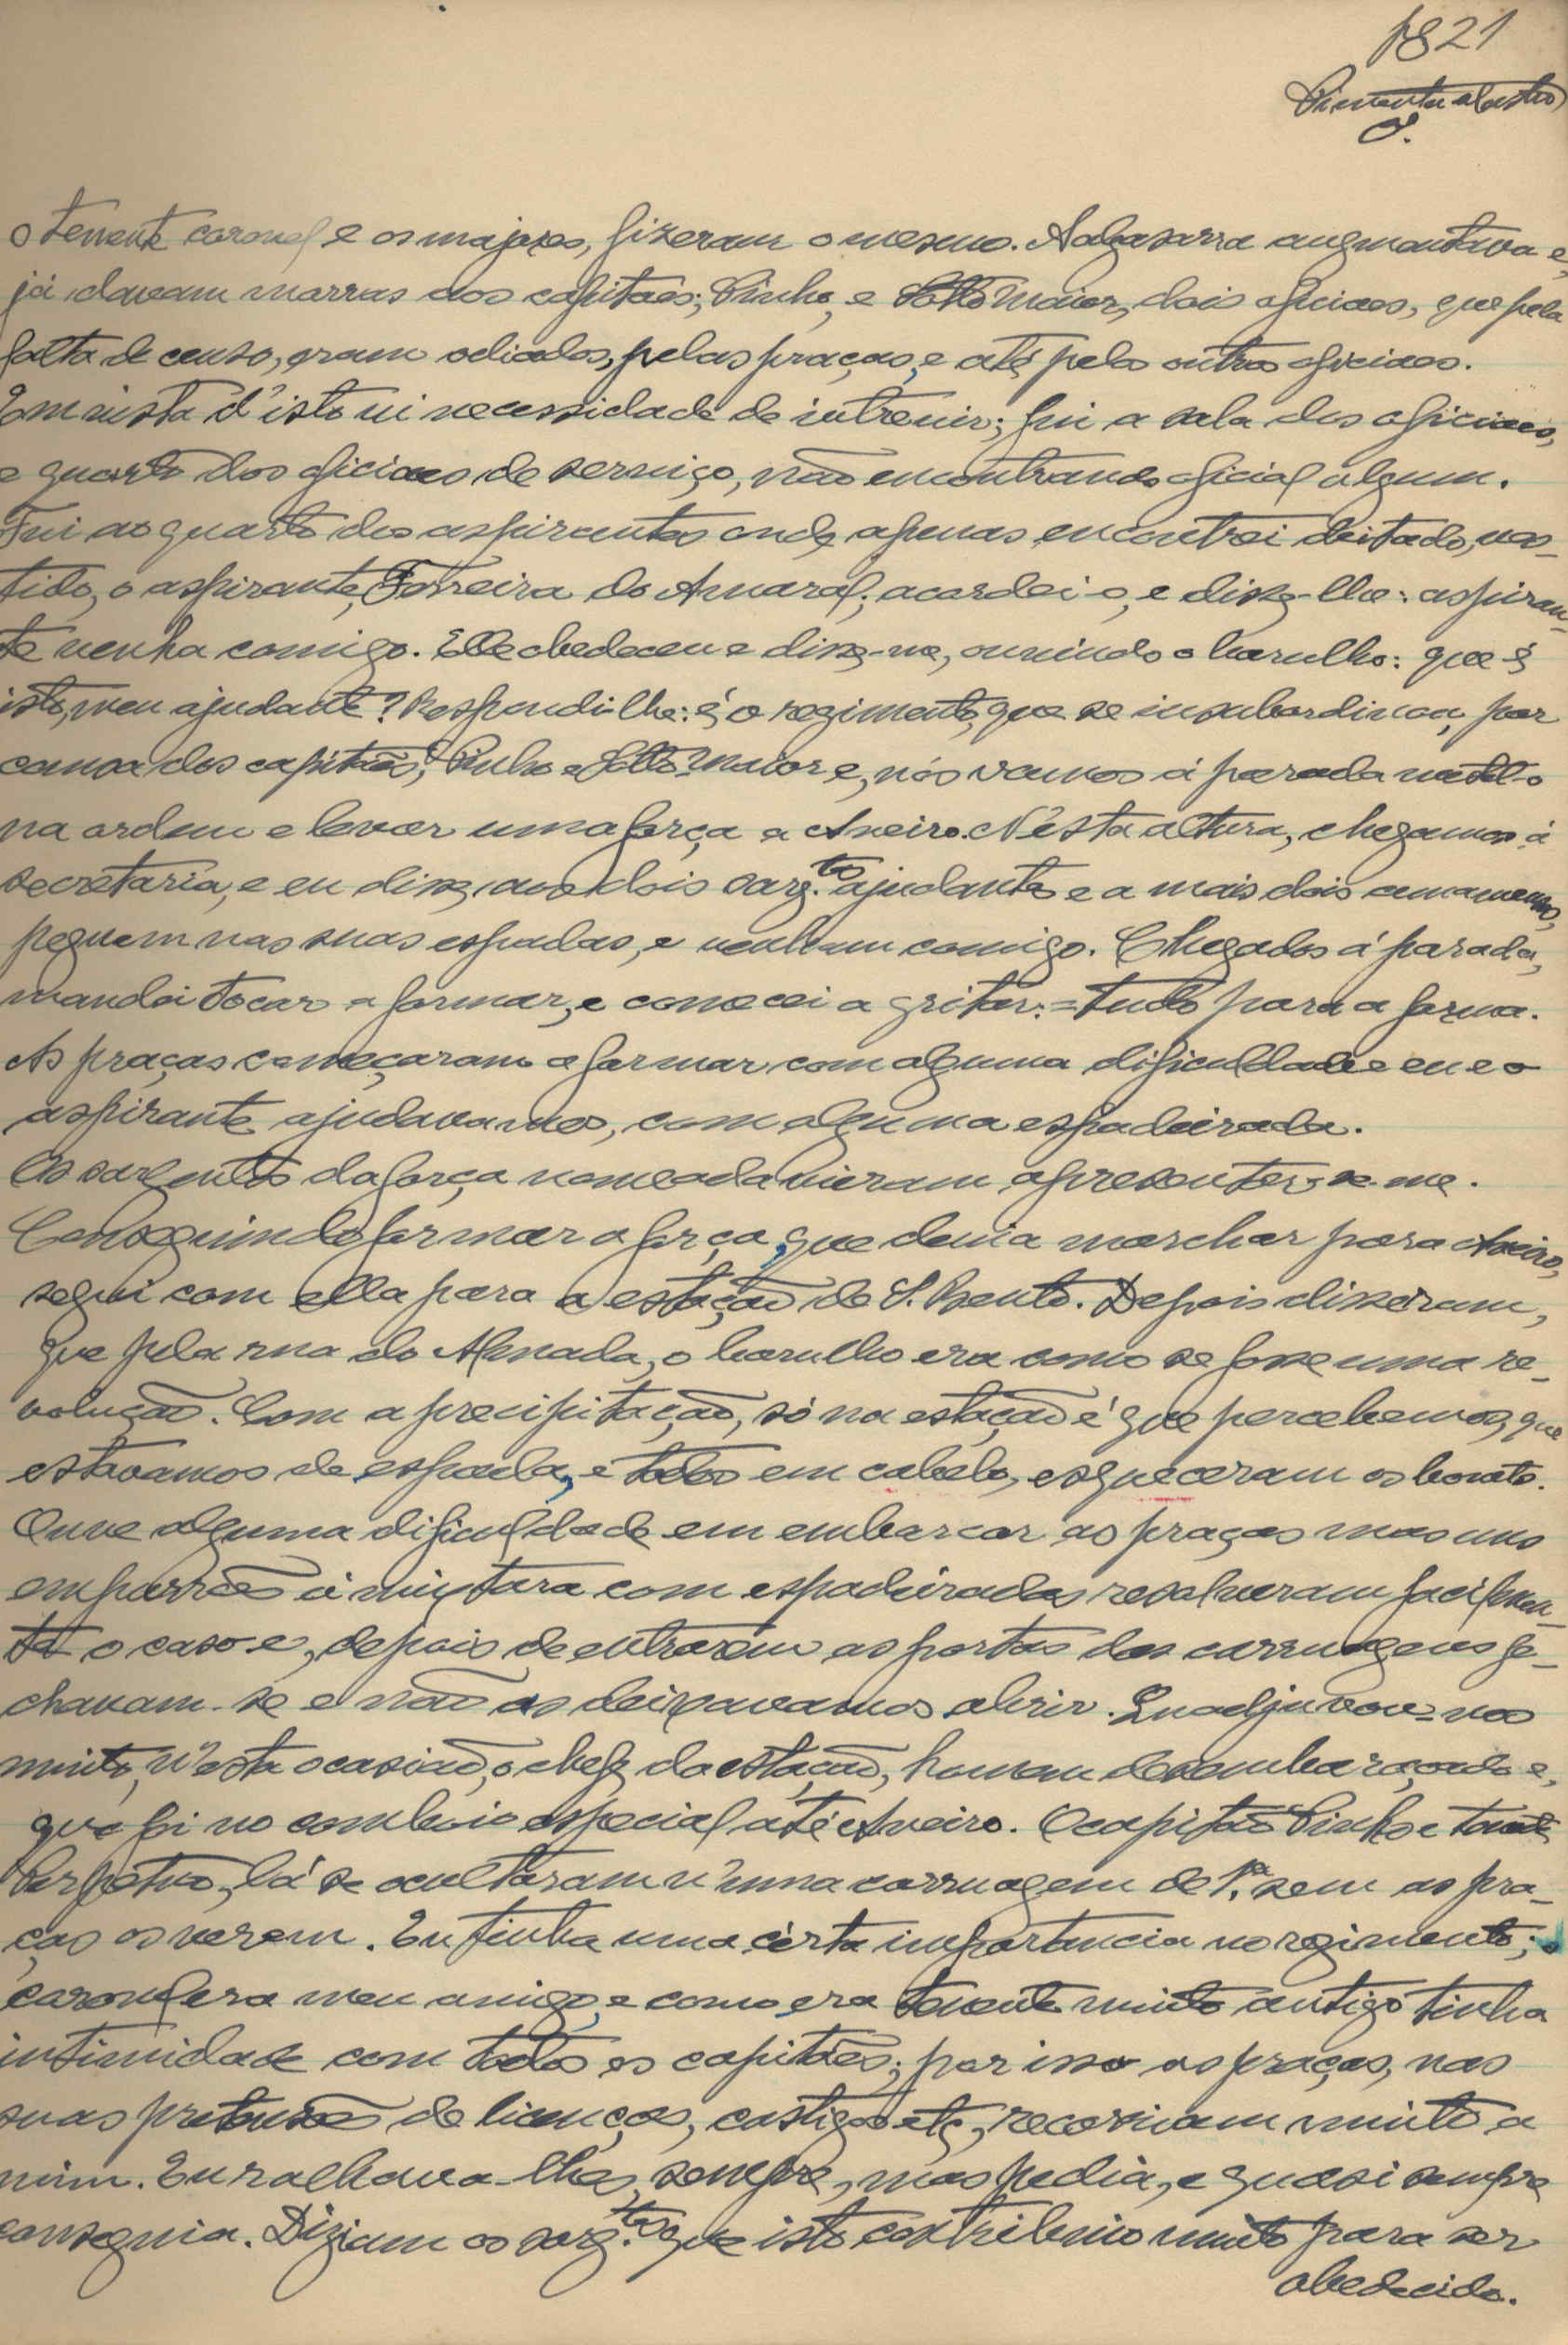 1821
Pimenta de Castro
O tenente coronel e os majores, fizeram o mesmo. A algasarra augmentava e,
já davam morras aos capitães; Pinho, e Sotto Maior, dois oficiaes, que pela
falta de censo, eram odiados, pelas praças, e até pelos outros oficiaes.
Em vista d'isto vi necessidade de intrevir; fui a sala dos oficiaes,
e quarto dos oficiaes de serviço, não encontrando oficial algum.
Fui ao quarto dos aspirantes onde apenas encontrei deitado, ves-
tido, o aspirante, Ferreira do Amaral; acordei-o, e disse-lhe: aspiran-
te venha comigo. Elle obedeceu e disse-me, ouvindo o barulho: que é
isto, meu ajudante? Respondi-lhe: é o regimento, que se insubordinou, por
causa dos capitães, Pinho e Sotto-Maior e, nós vamos á parada metel-o
na ordem e levar uma força a Aveiro. N'esta altura, chegamos á
secretaria, e eu disse, aos dois sarg.tos ajudantes e a mais dois amanuenses,
peguem nas suas espadas, e venham comigo. Chegados á parada,
mandei tocar a formar, e comecei a gritar: = tudo para a forma.
As praças começaram a formar com alguma dificuldade e eu e o
aspirante ajudavamos, com alguma espadeirada.
Os sargentos da força nomeada vieram apresentar-se-me.
Conseguindo formar a força, que devia marchar para Aveiro,
segui com ella para a estação de S. Bento. Depois disseram,
que pela rua do Almada, o barulho era como se fosse uma re-
volução. Com a precipitação, só na estação é que percebemos, que
estavamos de espada, e todos em cabelo, esqueceram os bonets.
Ouve alguma dificuldade em embarcar as praças mas uns
emparrões á mistura com espadeiradas resolveram facilmen-
te o caso e, depois de entrarem as portas das carruagens fe-
chavam-se e não as deixavamos abrir. Quadjuvou-nos
muito, n'esta ocasião, o chefe da estação, homem desembaraçado e,
que foi no comboio especial até Aveiro. O capitão Pinho e tenente
Perpetuo, lá se ocultaram n'uma carruagem de 1.ª sem as pra-
ças os verem. Eu tinha uma certa importancia no regimento; o
coronel era meu amigo, e como era tenente muito antigo tinha
intimidade com todos os capitães; por isso as praças, nas
suas pretensões de licenças, castigos etc, recorriam muito a
mim. Eu ralhava-lhes, sempre, mas pedia, e quasi sempre
conseguia. Diziam os sarg.tos que isto contribuio muito para ser
obedecido.